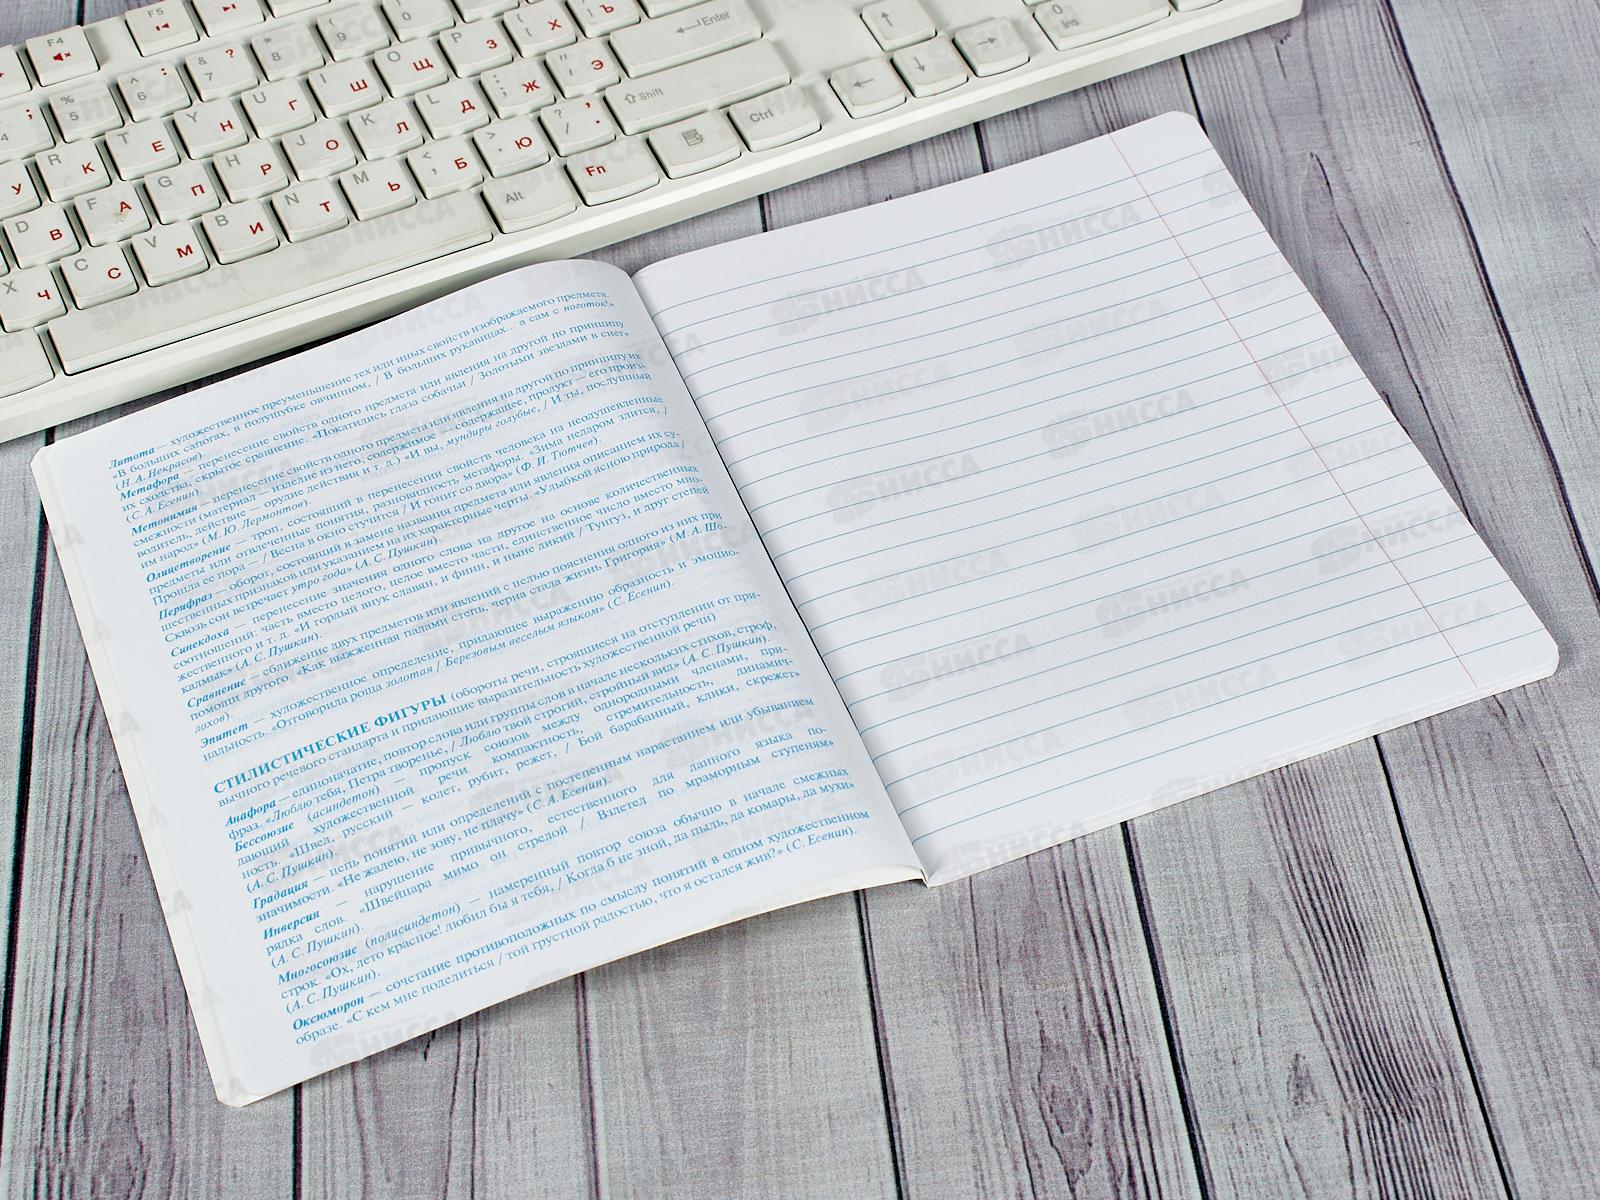 Литота — художественное преуменьшение тех или иных свойств изображаемого предмета.
«В больших сапогах, в полушубке овчинном, / В больших рукавицах... а сам с ноготок!»
(Н. А. Некрасов).
Метафора — перенесение свойств одного предмета или явления на другой по принципу
их сходства, скрытое сравнение. «Покатились глаза собачьи / Золотыми звездами в снег»
(С. А. Есенин).
Метонимия — перенесение свойств одного предмета или явления на другой по принципу их
смежности (материал — изделие из него, содержимое — содержащее, продукт — его произ-
водитель, действие — орудие действия и т. д.) «И вы, мундиры голубые, / И ты, послушный
им народ» (М. Ю. Лермонтов).
Олицетворение — троп, состоящий в перенесении свойств человека на неодушевленные
предметы или отвлеченные понятия, разновидность метафоры. «Зима недаром злится, /
Прошла ее пора — / Весна в окно стучится / И гонит со двора» (Ф. И. Тютчев).
Перифраз — оборот, состоящий в замене названия предмета или явления описанием их су-
щественных признаков или указанием на их характерные черты. «Улыбкой ясною природа /
Сквозь сон встречает утро года» (А. С. Пушкин).
Синекдоха — перенесение значения одного слова на другое на основе количественных
соотношений: часть вместо целого, целое вместо части, единственное число вместо мно-
жественного и т. д. «И гордый внук славян, и финн, и ныне дикий / Тунгуз, и друг степей
калмык» (А. С. Пушкин).
Сравнение — сближение двух предметов или явлений с целью пояснения одного из них при
помощи другого. «Как выжженная палами степь, черна стала жизнь Григория» (М. А. Шо-
лохов).
Эпитет — художественное определение, придающее выражению образность и эмоцио-
нальность. «Отговорила роща золотая / Березовым веселым языком» (С. Есенин).
СТИЛИСТИЧЕСКИЕ ФИГУРЫ (обороты речи, строящиеся на отступлении от при-
вычного речевого стандарта и придающие выразительность художественной речи)
Анафора — единоначатие, повтор слова или группы слов в начале нескольких стихов, строф,
фраз. «Люблю тебя, Петра творенье, / Люблю твой строгий, стройный вид» (А. С. Пушкин).
Бессоюзие (асиндетон) — пропуск союзов между однородными членами, при-
дающий художественной речи компактность, стремительность, динамич-
ность. «Швед, русский — колет, рубит, режет. / Бой барабанный, клики, скрежет»
(А. С. Пушкин).
Градация — цепь понятий или определений с постепенным нарастанием или убыванием
значимости. «Не жалею, не зову, не плачу» (С. А. Есенин)
Инверсия — нарушение привычного, естественного для данного языка по-
рядка слов. «Швейцара мимо он стрелой / Взлетел по мраморным ступеням»
(А. С. Пушкин).
Многосоюзие (полисиндетон) — намеренный повтор союза обычно в начале смежных
строк. «Ох, лето красное! любил бы я тебя, / Когда б не зной, да пыль, да комары, да мухи»
(А. С. Пушкин).
Оксюморон — сочетание противоположных по смыслу понятий в одном художественном
образе. «С кем мне поделиться / той грустной радостью, что я остался жив?» (С. Есенин).
F4
F5
Enter
Shift
Ctrl
Alt
Fn
0
Ins
НИССА